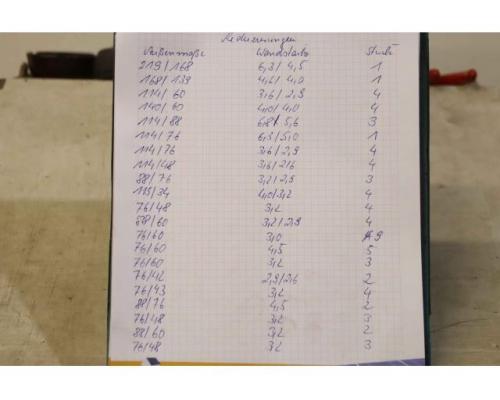 Reduzierungen
Außenmaße Wandstärke Stück
219/168 6,3/4,5 1
168/139 4,5/4,0 1
114/60 3,6/2,9 4
140/60 4,0/4,0 4
114/88 6,8/5,6 3
114/76 6,3/5,0 1
114/76 3,6/2,9 4
114/48 3,6/2,6 4
88/76 3,2/2,9 3
115/34 4,0/3,2 4
76/48 3,2 4
88/60 3,2/2,9 4
76/60 3,0 9
76/60 4,5 5
76/60 3,2 3
76/42 2,9/2,6 2
76/43 3,2 4
88/76 4,5 2
76/48 3,2 3
88/60 3,2 2
76/48 3,2 3